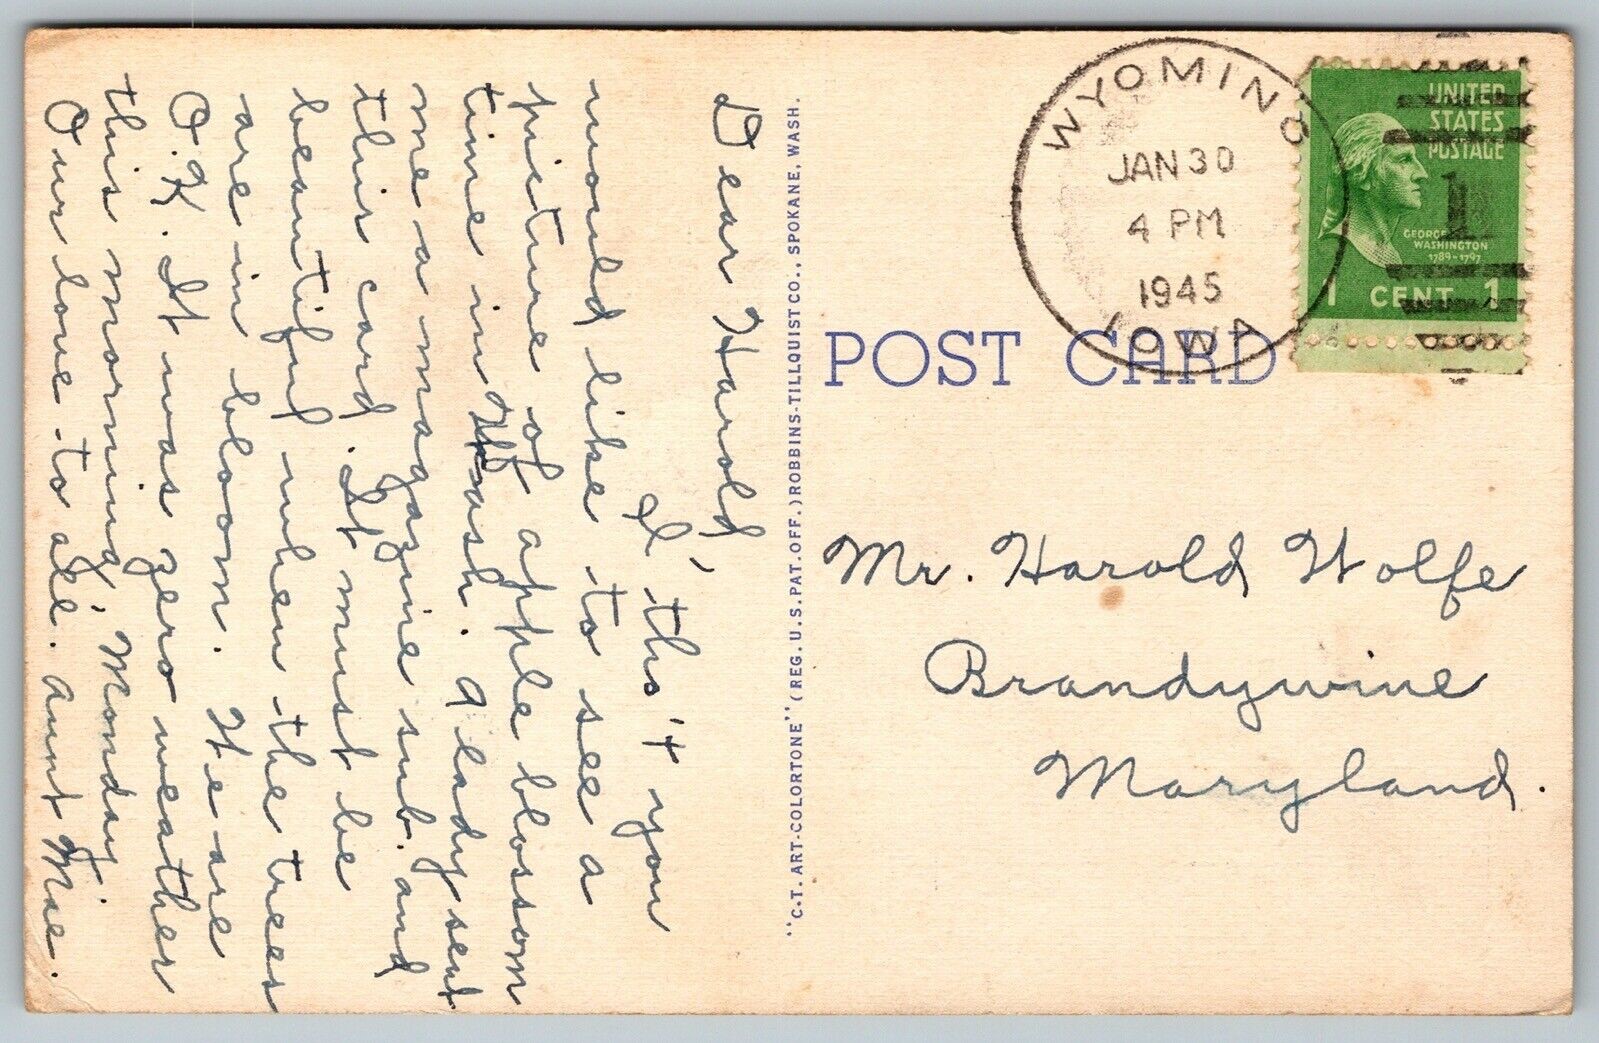 Dear Harold,
I tho't you
would like to see a
picture of apple blossom
time in Wash. a lady sent
me a magazine sub. and
this card. It must be
beautiful when the trees
are in bloom. We are
O.K. It was zero weather
this morning, Monday
Our love to all. Aunt Mae.
"C.T. ART-COLORTONE" (REG. U.S. PAT. OFF.) ROBBINS-TILLQUIST CO., SPOKANE, WASH.
POST CARD
WYOMING
JAN 30
4 PM
1945
IOWA
UNITED
STATES
POSTAGE
1
GEORGE
WASHINGTON
1789-1797
1 CENT 1
Mr. Harold Wolfe
Brandywine
Maryland.